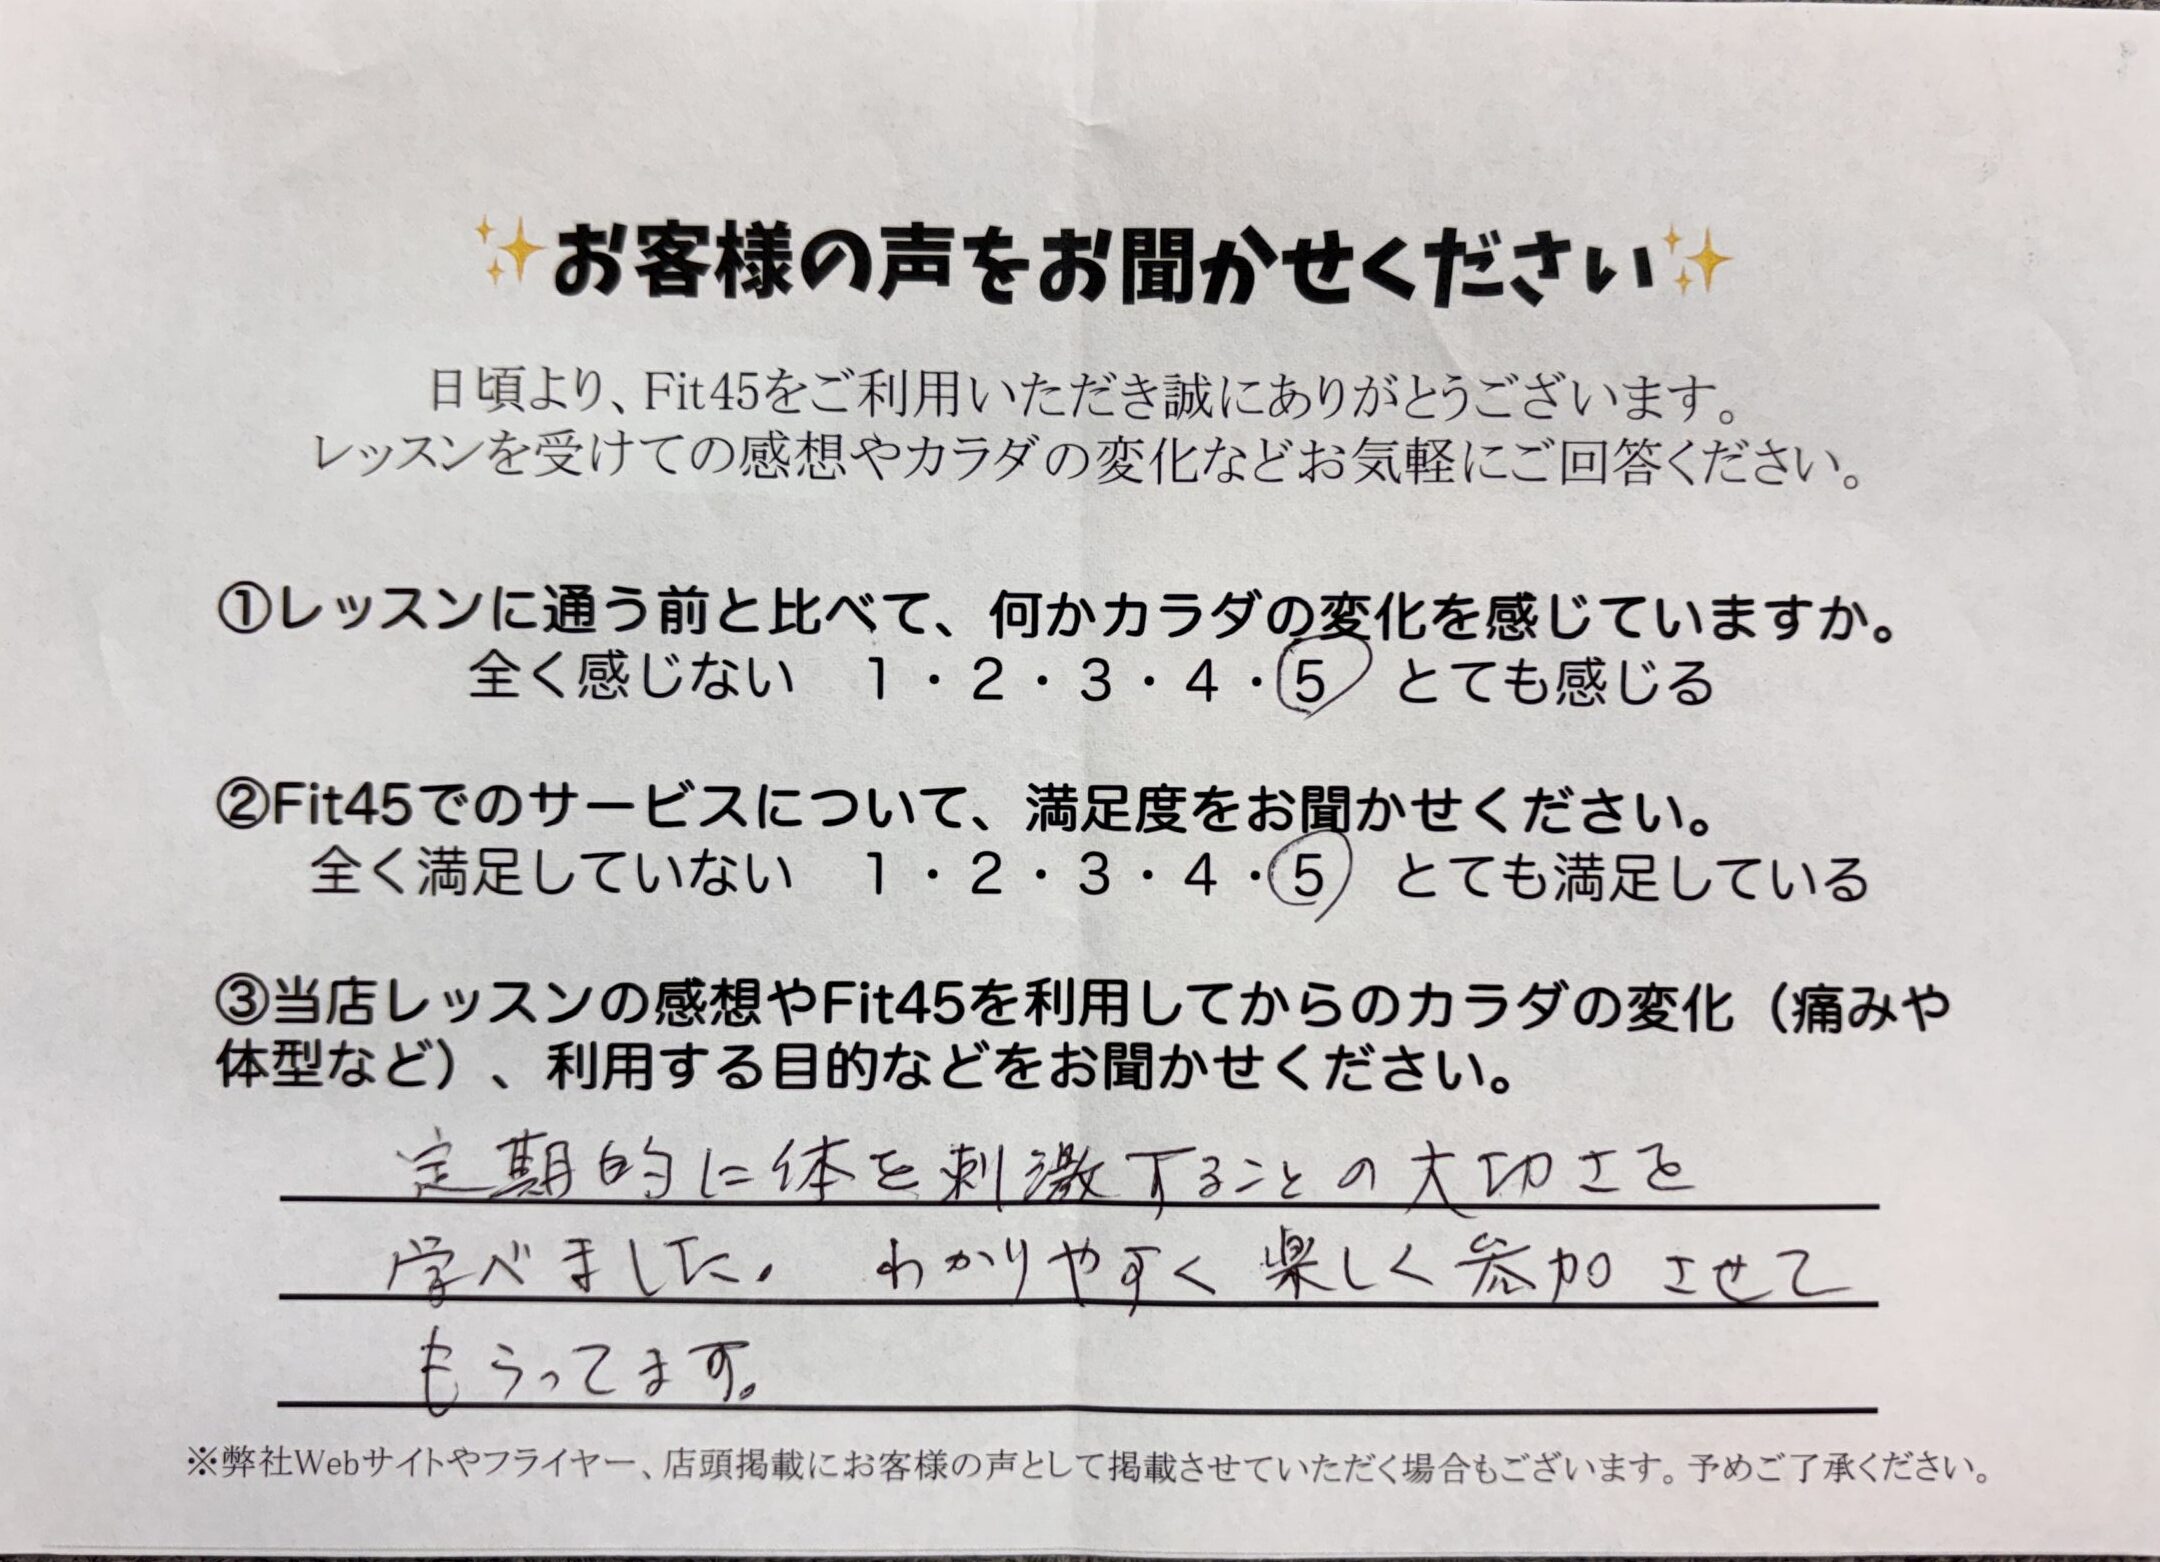 ✨お客様の声をお聞かせください✨
日頃より、Fit45をご利用いただき誠にありがとうございます。
レッスンを受けての感想やカラダの変化などお気軽にご回答ください。
①レッスンに通う前と比べて、何かカラダの変化を感じていますか。
全く感じない 1・2・3・4・5 とても感じる
②Fit45でのサービスについて、満足度をお聞かせください。
全く満足していない 1・2・3・4・5 とても満足している
③当店レッスンの感想やFit45を利用してからのカラダの変化（痛みや
体型など）、利用する目的などをお聞かせください。
定期的に体を刺激することの大切さを
学べました。 わかりやすく楽しく参加させて
もらってます。
※弊社Webサイトやフライヤー、店頭掲載にお客様の声として掲載させていただく場合もございます。予めご了承ください。